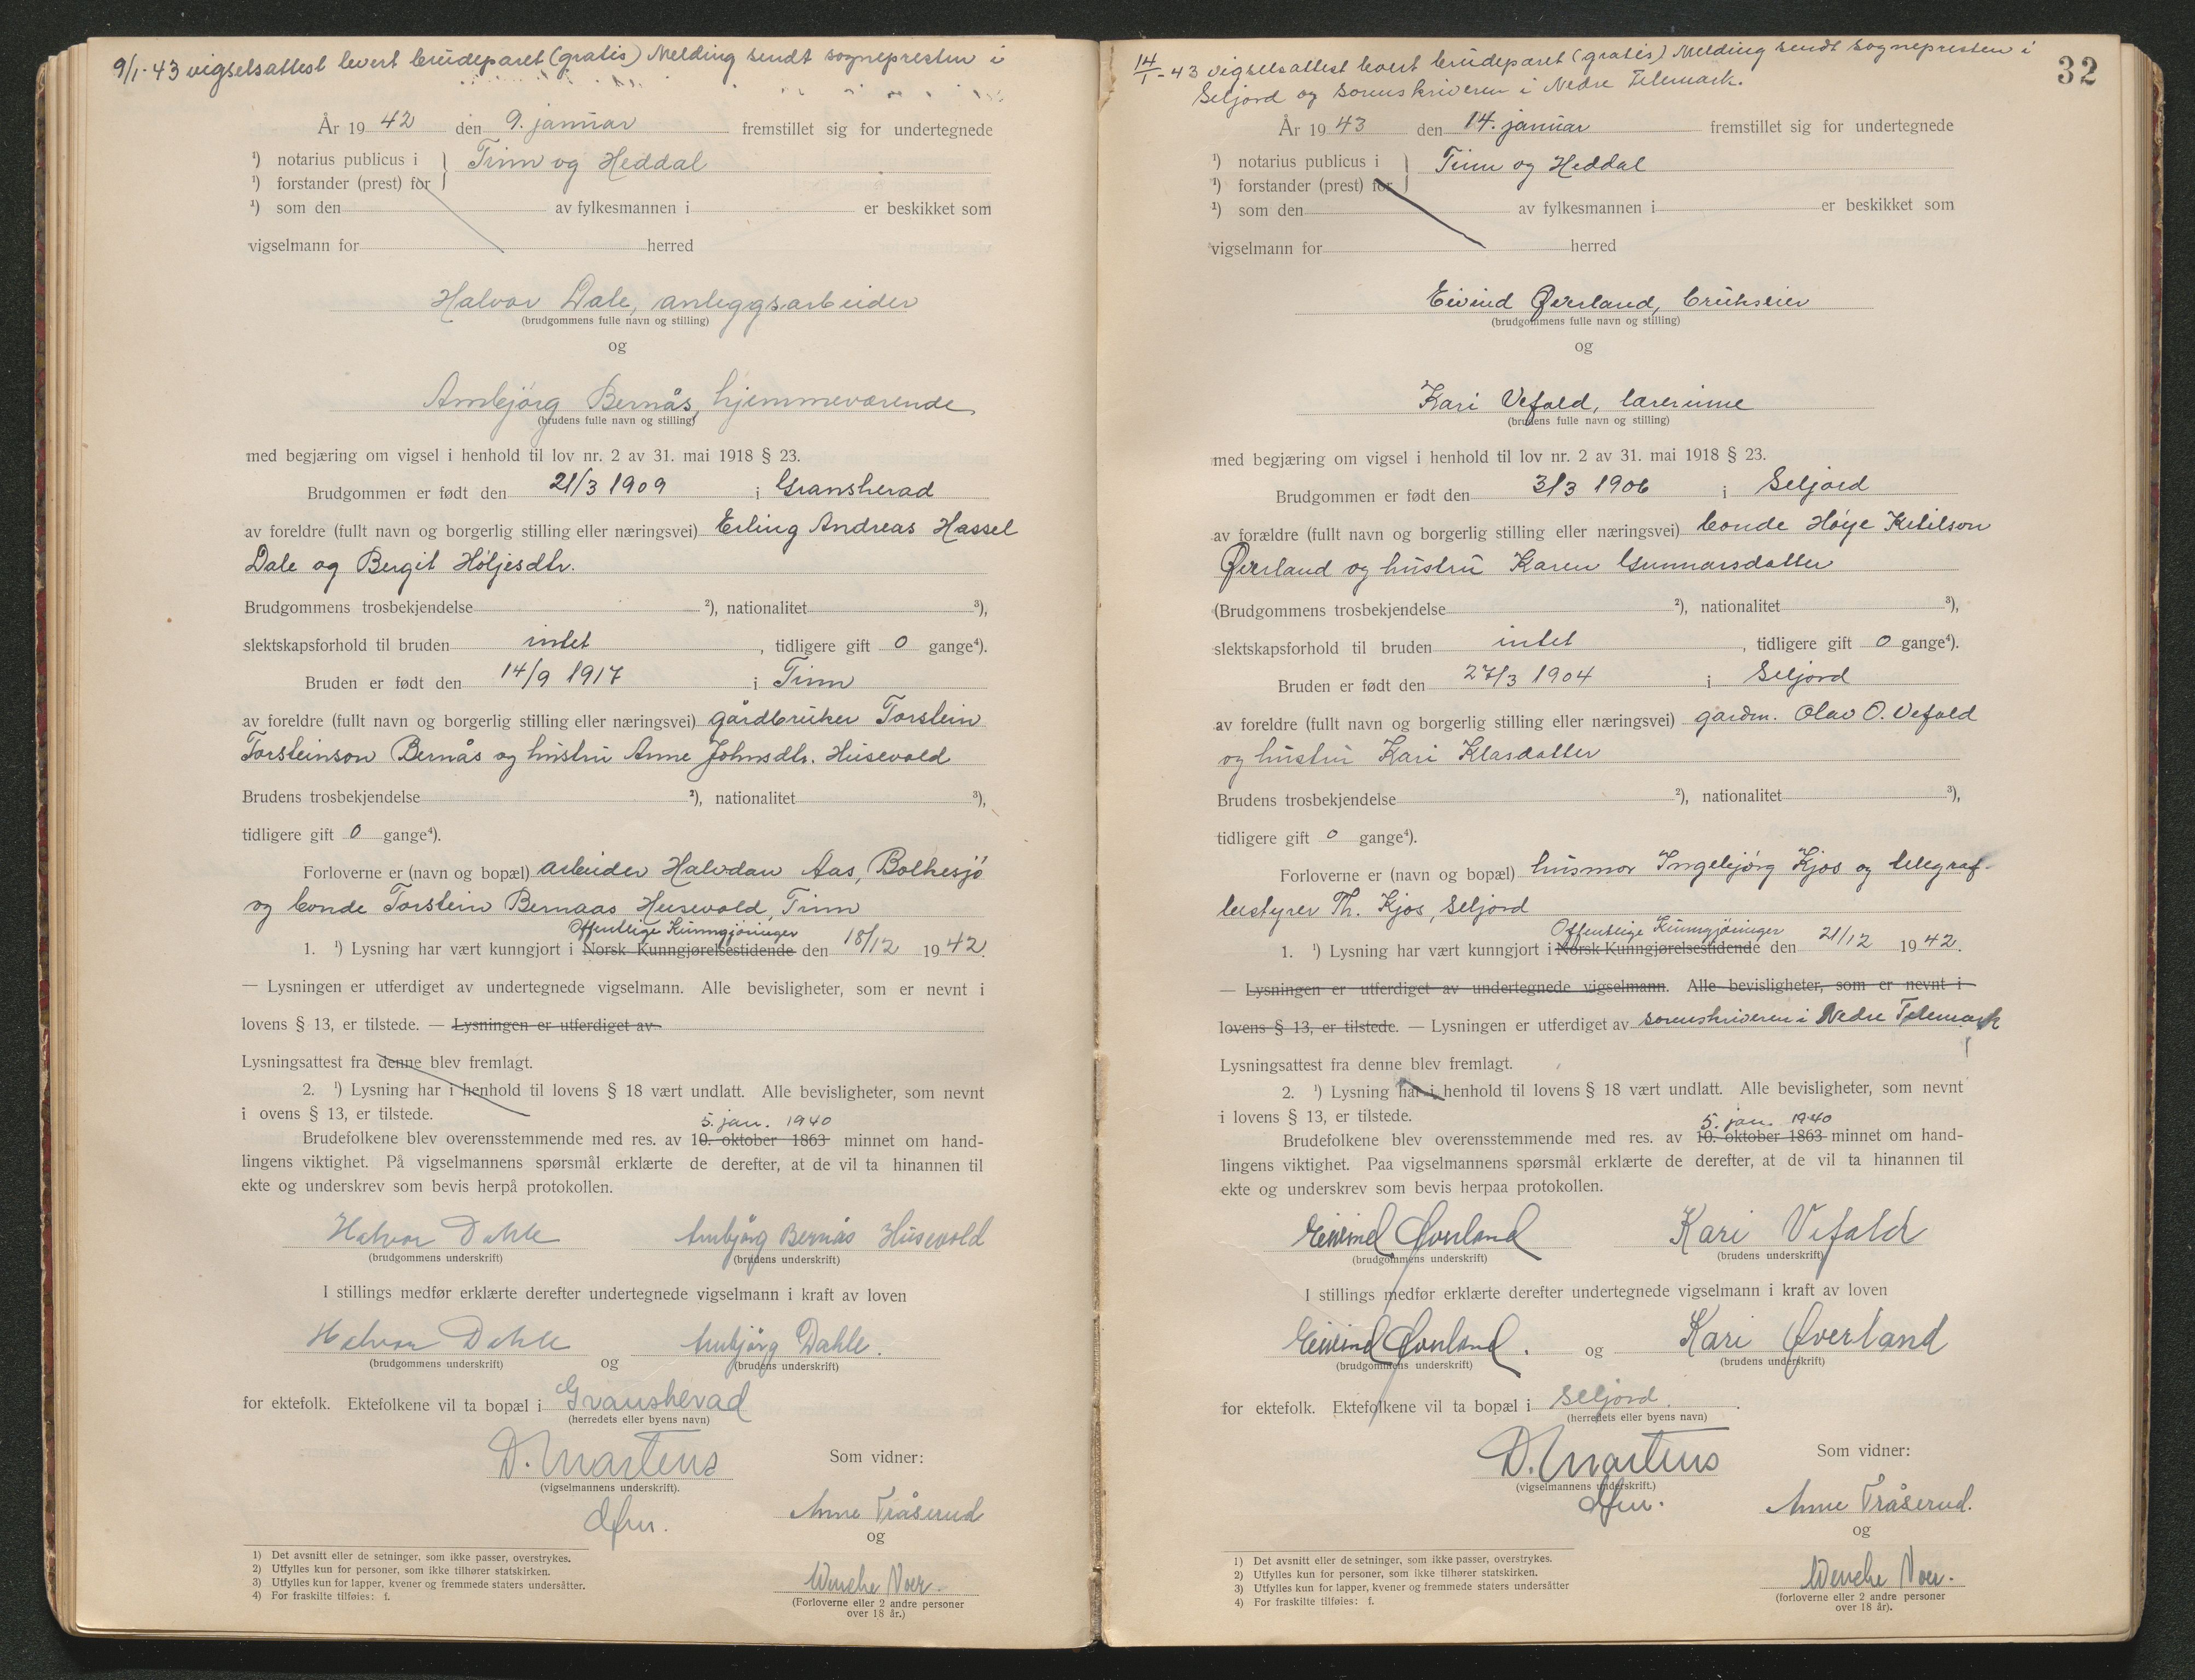 9/1-43 vigselsattest levert brudeparet (gratis) Melding sendt sognepresten i
År 19 42 den 9. januar fremstillet sig for undertegnede
¹) notarius publicus i } Tinn og Heddal
¹) forstander (prest) for
¹) som den av fylkesmannen i er beskikket som
vigselmann for herred
Halvor Dale, anleggsarbeider
(brudgommens fulle navn og stilling)
og
Ambjörg Bernås, hjemmeværende
(brudens fulle navn og stilling)
med begjæring om vigsel i henhold til lov nr. 2 av 31. mai 1918 § 23.
Brudgommen er født den 21/3 1909 i Gransherad
av foreldre (fullt navn og borgerlig stilling eller næringsvei) Erling Andreas Hassel
Dale og Bergit Höljesdtr.
Brudgommens trosbekjendelse ²), nationalitet ³),
slektskapsforhold til bruden intet, tidligere gift 0 gange⁴).
Bruden er født den 14/9 1917 i Tinn
av foreldre (fullt navn og borgerlig stilling eller næringsvei) gårdbruker Torstein
Torsteinson Bernås og hustru Anne Johnsdtr. Husevold
Brudens trosbekjendelse ²), nationalitet ³),
tidligere gift 0 gange⁴).
Forloverne er (navn og bopæl) arbeider Halvdan Aas, Bolkesjö
og bonde Torstein Bernaas Husevold, Tinn
Offentlige Kunngjöringer
1. ¹) Lysning har vært kunngjort i Norsk Kunngjørelsestidende den 18/12 1942.
— Lysningen er utferdiget av undertegnede vigselmann. Alle bevisligheter, som er nevnt i
lovens § 13, er tilstede. — Lysningen er utferdiget av
Lysningsattest fra denne blev fremlagt.
2. ¹) Lysning har i henhold til lovens § 18 vært undlatt. Alle bevisligheter, som nevnt
i ovens § 13, er tilstede.
5. jan. 1940
Brudefolkene blev overensstemmende med res. av 10. oktober 1863 minnet om hand-
lingens viktighet. På vigselmannens spørsmål erklærte de derefter, at de vil ta hinannen til
ekte og underskrev som bevis herpå protokollen.
Halvor Dahle Ambjörg Bernås Husevold
(brudgommens underskrift) (brudens underskrift)
I stillings medfør erklærte derefter undertegnede vigselmann i kraft av loven
Halvor Dahle og Ambjörg Dahle.
(brudgommens underskrift) (brudens underskrift)
for ektefolk. Ektefolkene vil ta bopæl i Gransherad
(herredets eller byens navn)
D. Martens Som vidner:
(vigselmannens underskrift).
dfm. Anne Tråserud
og
Wenche Noer.
(Forloverne eller 2 andre personer
over 18 år.)
1) Det avsnitt eller de setninger, som ikke passer, overstrykes.
2) Utfylles kun for personer, som ikke tilhører statskirken.
3) Utfylles kun for lapper, kvener og fremmede staters undersåtter.
4) For fraskilte tilføies: f.
32
14/1-43 vigselsattest levert brudeparet (gratis) Melding sendt sognepresten i
Seljord og sorenskriveren i Nedre Telemark.
År 19 43 den 14. januar fremstillet sig for undertegnede
¹) notarius publicus i } Tinn og Heddal
¹) forstander (prest) for
¹) som den av fylkesmannen i er beskikket som
vigselmann for herred
Eivind Øverland, brukseier
(brudgommens fulle navn og stilling)
og
Kari Vefald, lærerinne
(brudens fulle navn og stilling)
med begjæring om vigsel i henhold til lov nr. 2 av 31. mai 1918 § 23.
Brudgommen er født den 3/3 1906 i Seljord
av forældre (fullt navn og borgerlig stilling eller næringsvei) bonde Höye Ketilson
Øverland og hustru Karen Gunnarsdatter
(Brudgommens trosbekjendelse ²), nationalitet ³),
slektskapsforhold til bruden intet, tidligere gift 0 gange⁴).
Bruden er født den 27/3 1904 i Seljord
av foreldre (fullt navn og borgerlig stilling eller næringsvei) gardm. Olav O. Vefald
og hustru Kari Klasdatter
Brudens trosbekjendelse ²), nationalitet ³),
tidligere gift 0 gange⁴).
Forloverne er (navn og bopæl) husmor Ingebjörg Kjos og telegraf-
bestyrer Th. Kjos, Seljord
Offentlige Kunngjöringer
1. ¹) Lysning har vært kunngjort i Norsk Kunngjørelsestidende den 21/12 1942.
— Lysningen er utferdiget av undertegnede vigselmann. Alle bevisligheter, som er nevnt i
lovens § 13, er tilstede. — Lysningen er utferdiget av sorenskriveren i Nedre Telemark
Lysningsattest fra denne blev fremlagt.
2. ¹) Lysning har i henhold til lovens § 18 vært undlatt. Alle bevisligheter, som nevnt
i lovens § 13, er tilstede.
5. jan. 1940
Brudefolkene blev overensstemmende med res. av 10. oktober 1863 minnet om hand-
lingens viktighet. Paa vigselmannens spørsmål erklærte de derefter, at de vil ta hinannen til
ekte og underskrev som bevis herpaa protokollen.
Eivind Øverland Kari Vefald
(brudgommens underskrift) (brudens underskrift)
I stillings medfør erklærte derefter undertegnede vigselmann i kraft av loven
Eivind Øverland. og Kari Øverland
(brudgommens underskrift) (brudens underskrift)
for ektefolk. Ektefolkene vil ta bopæl i Seljord.
(herredets eller byens navn)
D. Martens Som vidner:
(vigselmannens underskrift.)
dfm. Anne Tråserud.
og
Wenche Noer.
(forloverne eller 2 andre personer
over 18 år).
1) Det avsnitt eller de setninger, som ikke passer, overstrykes.
2) Utfylles kun for personer, som ikke tilhører statskirken.
3) Utfylles kun for lapper, kvener og fremmede staters undersåtter
4) For fraskilte tilføies: f.